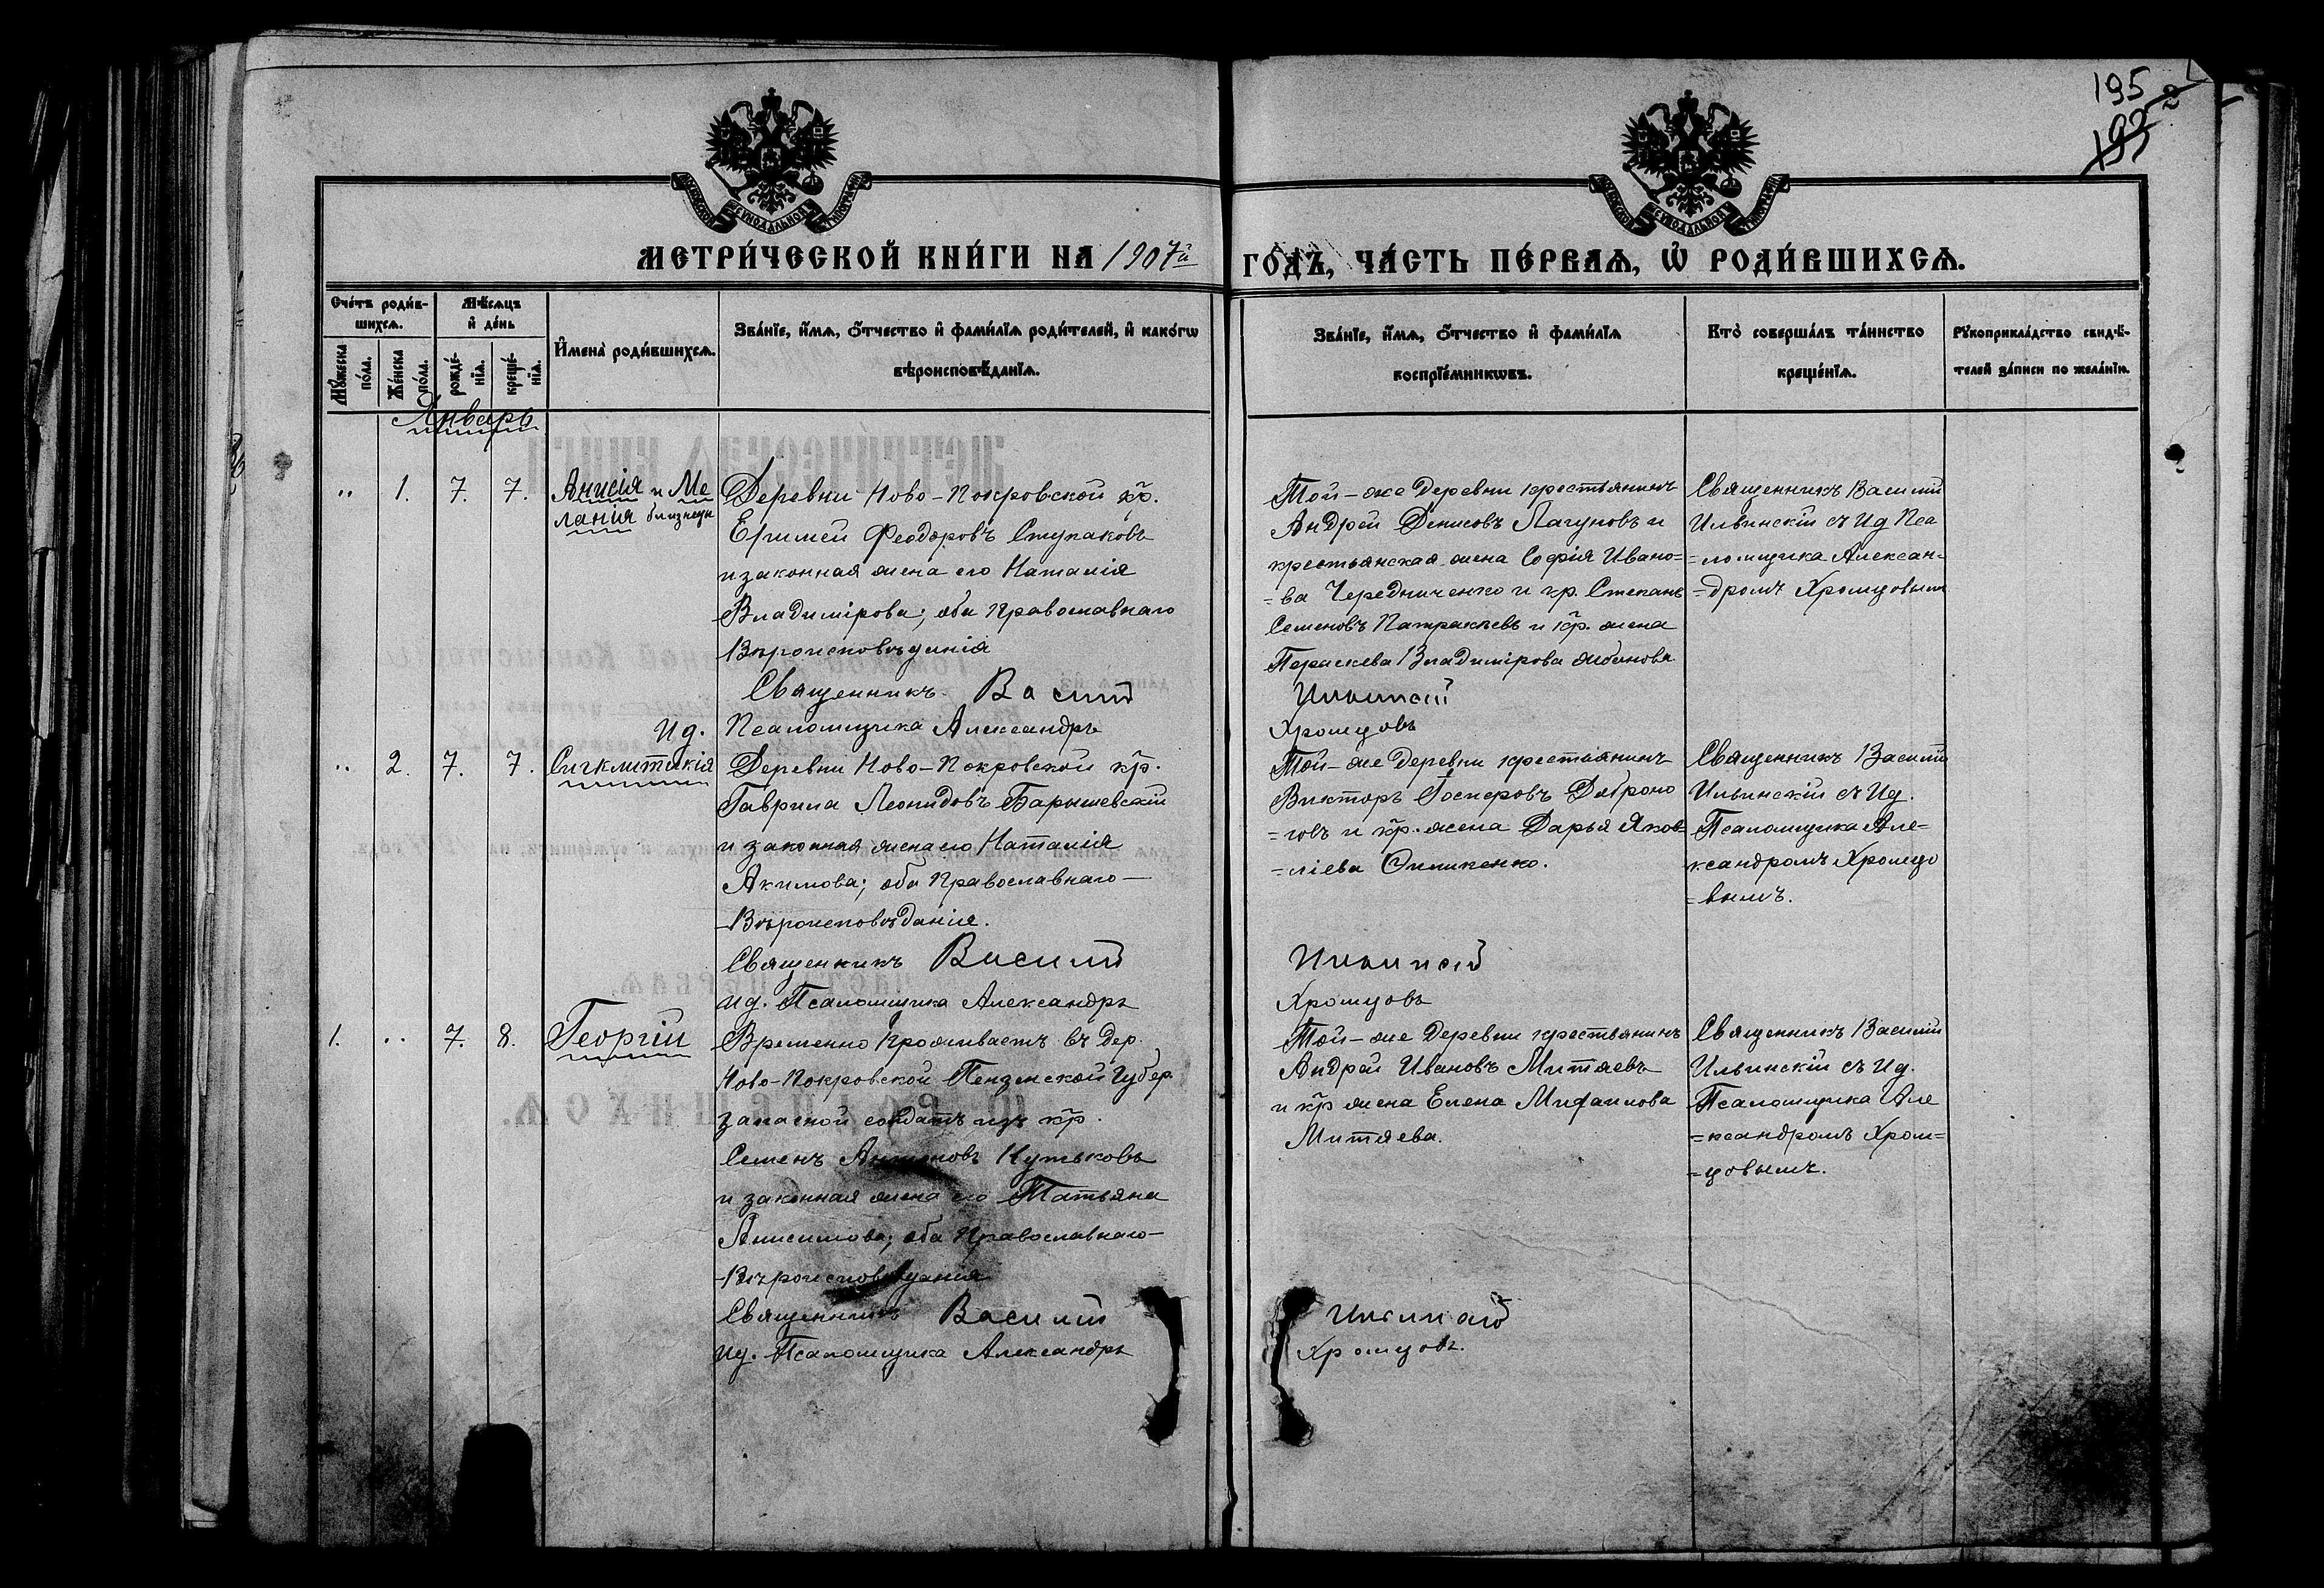 195
193
2
МОСКОВСКОЙ СѴНОДАЛЬНОЙ ТИПОГРАФІИ
МОСКОВСКОЙ СѴНОДАЛЬНОЙ ТИПОГРАФІИ
МЕТРИ́ЧЕСКОЙ КНИ́ГИ НА 1907й
ГО́ДЪ, ЧА́СТЬ ПЕ́РВАѦ, Ѡ҆ РОДИ́ВШИХСѦ.
Сче́тъ роди́в-
шихсѧ.
Мѣ́сѧцъ
и҆ де́нь
Мꙋ́жеска
по́ла.
Же́нска
по́ла.
рожде́-
нїѧ.
креще́-
нїѧ.
И҆мена̀ роди́вшихсѧ.
Зва́нїе, и҆́мѧ, ѻ҆́тчество и҆ фами́лїѧ роди́телей, и҆ како́гѡ
вѣроисповѣ́данїѧ.
Зва́нїе, и҆́мѧ, ѻ҆́тчество и҆ фами́лїѧ
воспрїе́мникѡвъ.
Кто̀ соверша́лъ та́инство
креще́нїѧ.
Рꙋкоприкла́дство свидѣ́-
телей за́писи по жела́нїю.
Январь
" 1. 7. 7.
Анисія и Ме
ланія близнецы
Деревни Ново-Покровской кр.
Ефимей Феодоровъ Ступаковъ
и законная жена его Наталія
Владимірова; оба Православнаго
Вѣроисповѣданія
Священникъ Василій
Ид. Псаломщика Александръ
Той-же деревни крестьянинъ
Андрей Денисовъ Лагуновъ и
крестьянская жена Софія Ивано=
=ва Чередниченко и кр. Степанъ
Семеновъ Патракѣевъ и кр. жена
Параскева Владимірова
Ильинскій
Хромцовъ
Священникъ Василій
Ильинскій съ Ид Пса
=ломщика Алексан=
=дромъ Хромцовымъ
" 2. 7. 7.
Сигклитикія
Деревни Ново-Покровской кр.
Гаврила Леонидовъ Барышевскій
и законная жена его Наталія
Акимова; оба Православнаго—
Вѣроисповѣданія.
Священникъ Василій
ид. Псаломщика Александръ
Той-же деревни крестьянинъ
Викторъ
и кр. жена Дарья Яков=
=ліева
Ильинскій
Хромцовъ
Священникъ Василій
Ильинскій съ Ид.
Псаломщика Але=
ксандромъ Хромцо
=вымъ.
1. " 7. 8.
Георгій
Временно проживаетъ въ дер.
Ново-Покровской Пензенской Губер.
запасной солдатъ изъ кр.
Семенъ Антоновъ Кутьковъ
и законная жена его Татьяна
Анисимова; оба Православнаго—
Вѣроисповѣданія
Священникъ Василій
ид. Псаломщика Александръ
Той-же деревни крестьянинъ
Андрей Ивановъ Митяевъ
и кр жена Елена Михаилова
Митяева.
Ильинскій
Хромцовъ.
Священникъ Василій
Ильинскій съ Ид.
Псаломщика Але
=ксандромъ Хром=
=цовымъ.